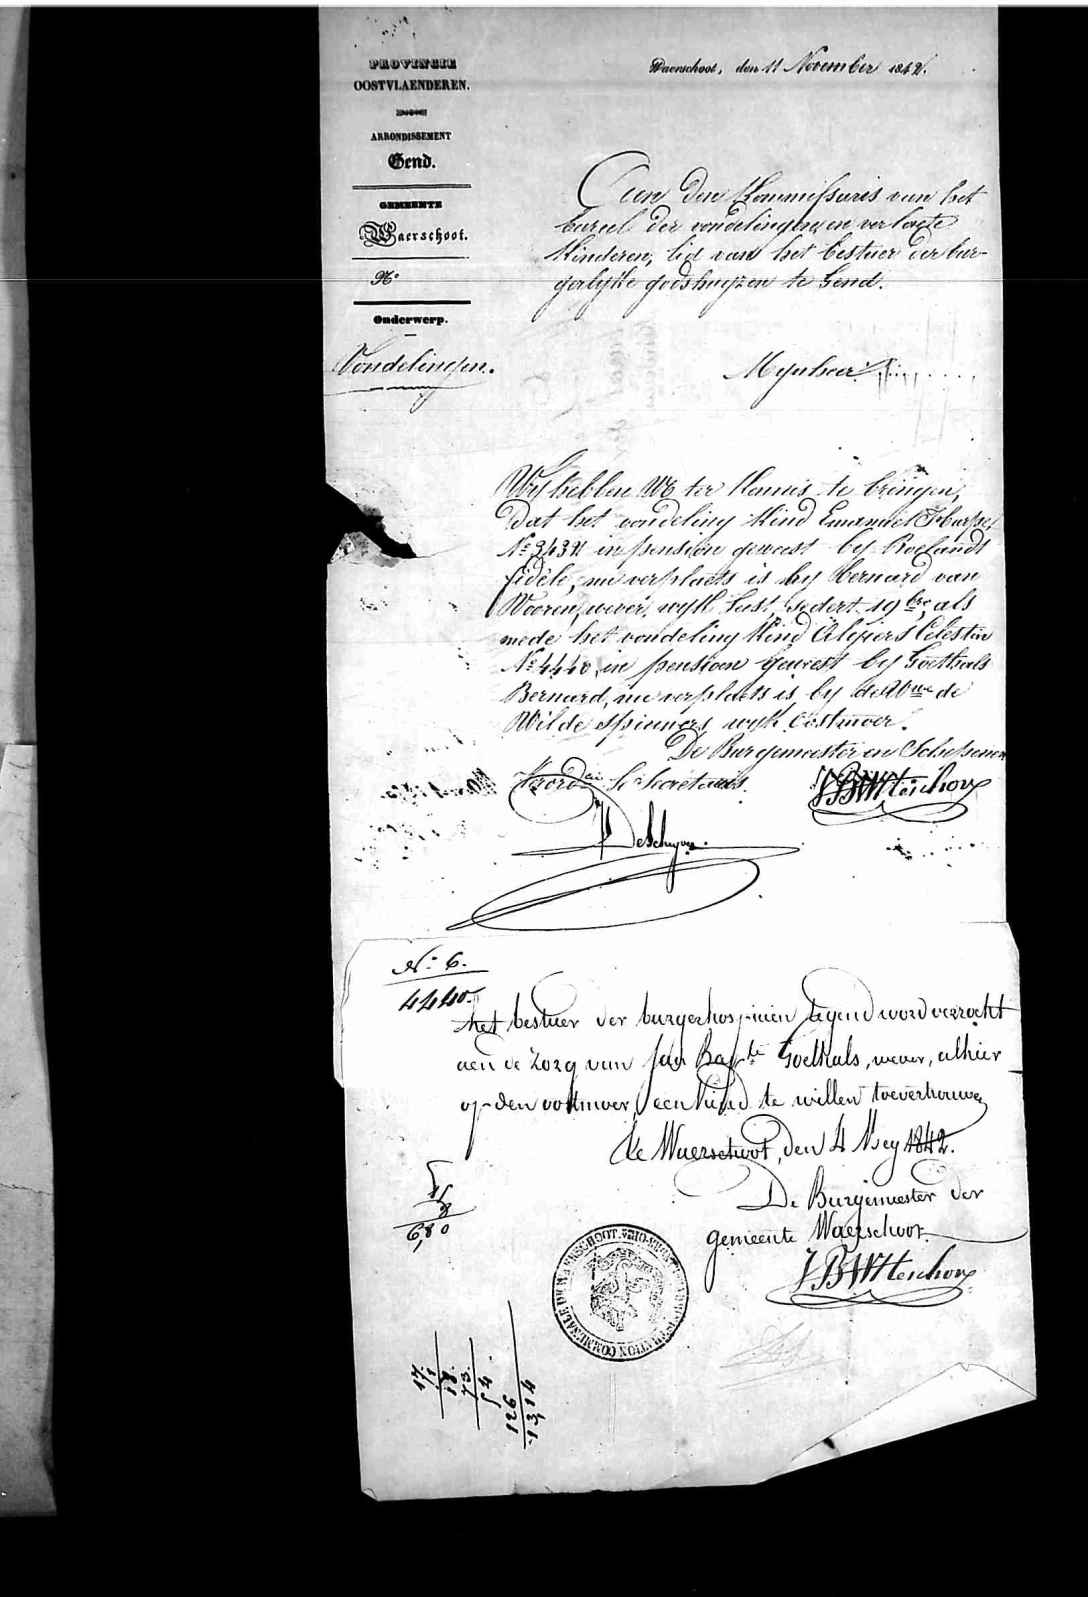 PROVINCIE
OOSTVLAENDEREN.
ARRONDISSEMENT
Gend.
GEMEENTE
Waerschoot.
No
Onderwerp.
Vondelingen.
Waerschoot, den 11 November 1842.
Aen den Kommissaris van het
bureel der vondelingen en verlaete
kinderen, lid van het bestuer der bur-
gerlyke godshuyzen te Gend.
Mynheer
Wy hebben UE ter kennis te brengen,
dat het vondeling kind Emanuel
No in pension geweest by Roelandt
fidèle, nu verplaets is by Bernard van
Vooren, wever, wyk sedert 19 bre, als
mede het vondeling kind Celestin
No 4440, in pensioen geweest by Goethals
Bernard, nu verplaets is by de Wwe de
Wilde spinners, wyk Oostmoer.
De Burgemeester en Schepenen
Secretaris.
No 6.
4440.
Het bestuer der burgerhospicien tegend word verzocht
aen de zorg van Jan Bapte Goethals, wever, alhier
op den oostmoer, een kind te willen toevertrouwen
Waerschoot, den 4 Mey 1842.
De Burgemeester der
gemeente Waerschoot.
6,80